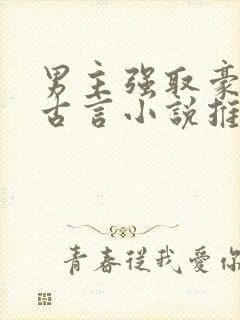 男主强取豪
古言小説推
青春從我愛你